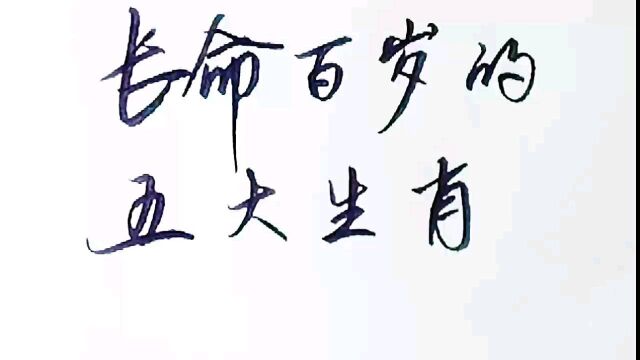 长命百岁的
五大生肖